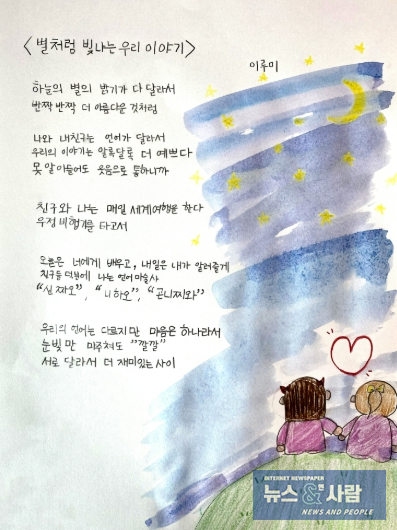 <별처럼 빛나는 우리 이야기>
이루미
하늘의 별의 밝기가 다 달라서
반짝 반짝 더 아름다운 것처럼
나와 내친구는 언어가 달라서
우리의 이야기는 알록달록 더 예쁘다
못 알아들어도 웃음으로 통하니까
친구와 나는 매일 세계여행을 한다
우정 비행기를 타고서
오늘은 너에게 배우고, 내일은 내가 알려줄게
친구들 덕분에 나는 언어마술사
"신 짜오", "니하오", "곤니찌와"
우리의 언어는 다르지만 마음은 하나라서
눈빛만 마주쳐도 "깔깔"
서로 달라서 더 재미있는 사이
INTERNET NEWSPAPER
뉴스&사람
NEWS AND PEOPLE